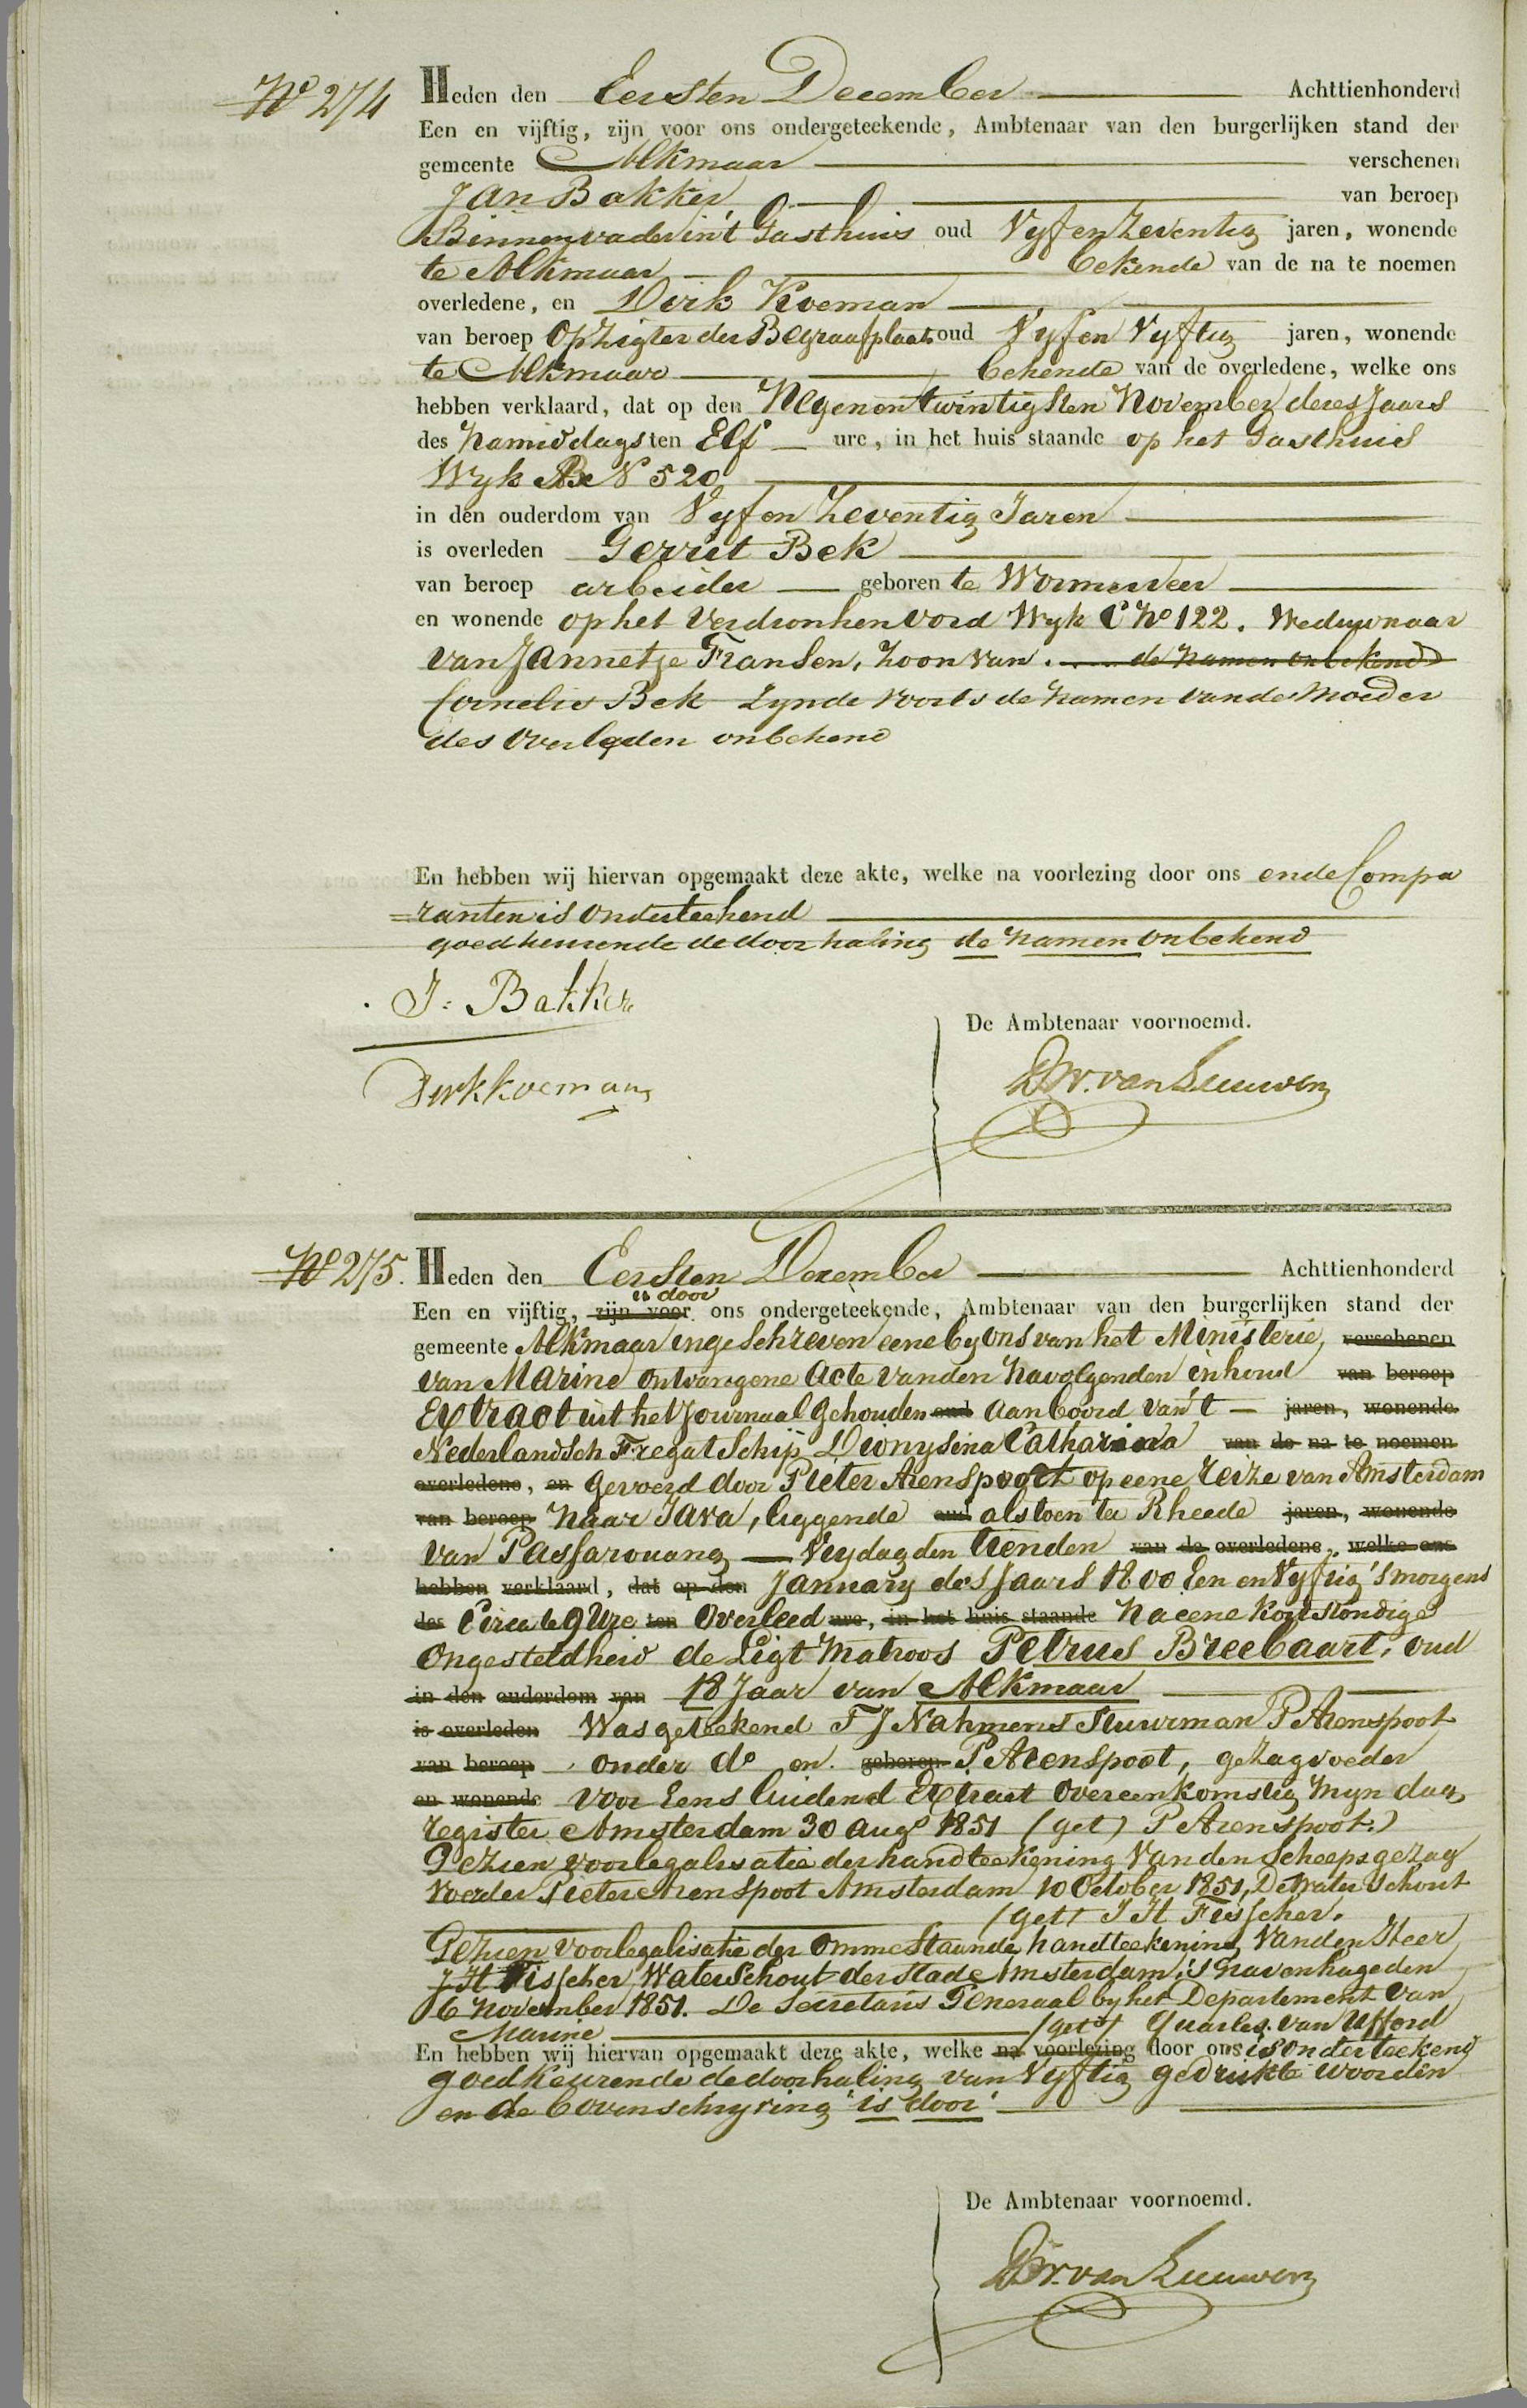 No 274
Heden den Eersten December Achttienhonderd
Een en vijftig, zijn voor ons ondergeteekende, Ambtenaar van den burgerlijken stand der
gemeente Alkmaar verschenen
Jan Bakker van beroep
Binnenvader in 't Gasthuis oud Vyf en Zeventig jaren, wonende
te Alkmaar bekende van de na te noemen
overledene, en Dirk Koeman
van beroep Opzigter der Begraafplaats oud Vyf en Vyftig jaren, wonende
te Alkmaar bekende van de overledene, welke ons
hebben verklaard, dat op den Negenentwintigsten November dezes Jaars
des Namiddags ten Elf ure, in het huis staande op het Gasthuis
Wyk B No 520
in den ouderdom van Vyf en Zeventig Jaren
is overleden Gerrit Bek
van beroep arbeider geboren te Wormerveer
en wonende op het Verdronkenoord Wyk C No 122. Weduwnaar
van Jannetje Fransen, Zoon van de namen onbekend
Cornelis Bek Zynde voorts de Namen van de Moeder
des Overleden onbekend
En hebben wij hiervan opgemaakt deze akte, welke na voorlezing door ons en de Compa
=ranten is onderteekend
goedkeurende de doorhaling de namen onbekend
J: Bakker
De Ambtenaar voornoemd.
Dirk Koeman
van Leeuwen
No 275.
Heden den Eersten December Achttienhonderd
is door
Een en vijftig, zijn voor ons ondergeteekende, Ambtenaar van den burgerlijken stand der
gemeente Alkmaar ingeschreven eene by ons van het Ministerie verschenen
van Marine ontvangene acte van den navolgenden inhoud van beroep
Extract uit het Journaal gehouden oud aan boord van 't jaren, wonende
Nederlandsch Fregat Schip Dionysina Catharina van de na te noemen
overledene, en gevoerd door Pieter Arenspoot op eene reize van Amsterdam
van beroep naar Java, liggende oud alstoen ter Rheede jaren, wonende
van Passarouang Vrydag den tienden van de overledene, welke ons
hebben verklaard, dat op den January des Jaars 1800 Een en Vyftig 's morgens
des Circa te 9 Ure ten Overleed ure, in het huis staande Na eene kortstondige
Ongesteldheid de Ligt Matroos Petrus Breebaart, oud
in den ouderdom van 18 Jaar van Alkmaar
is overleden Was geteekend F J Nahmens Stuurman P Arenspoot
van beroep onder do en geboren P. Arenspoot, gezagvoeder
en wonende voor Eensluidend Extract Overeenkomstig myn dag
register Amsterdam 30 Augs 1851 (get) P Arenspoot.)
Gezien voor legalisatie der handteekening van den Scheepsgezag
voerder Pieter Arenspoot Amsterdam 10 October 1851, De Water Schout
(get) J H Fisscher.
Gezien voor legalisatie der ommestaande handteekening van den Heer
J H Fisscher, Waterschout der stad Amsterdam, 's Gravenhage den
6 November 1851. De Secretaris Generaal by het Departement van
Marine (get) Quarles van Ufford
En hebben wij hiervan opgemaakt deze akte, welke na voorlezing door ons is onderteekend
goedkeurende de doorhaling van Vyftig gedrukte woorden
en de bovenschryving "is door"
De Ambtenaar voornoemd.
van Leeuwen